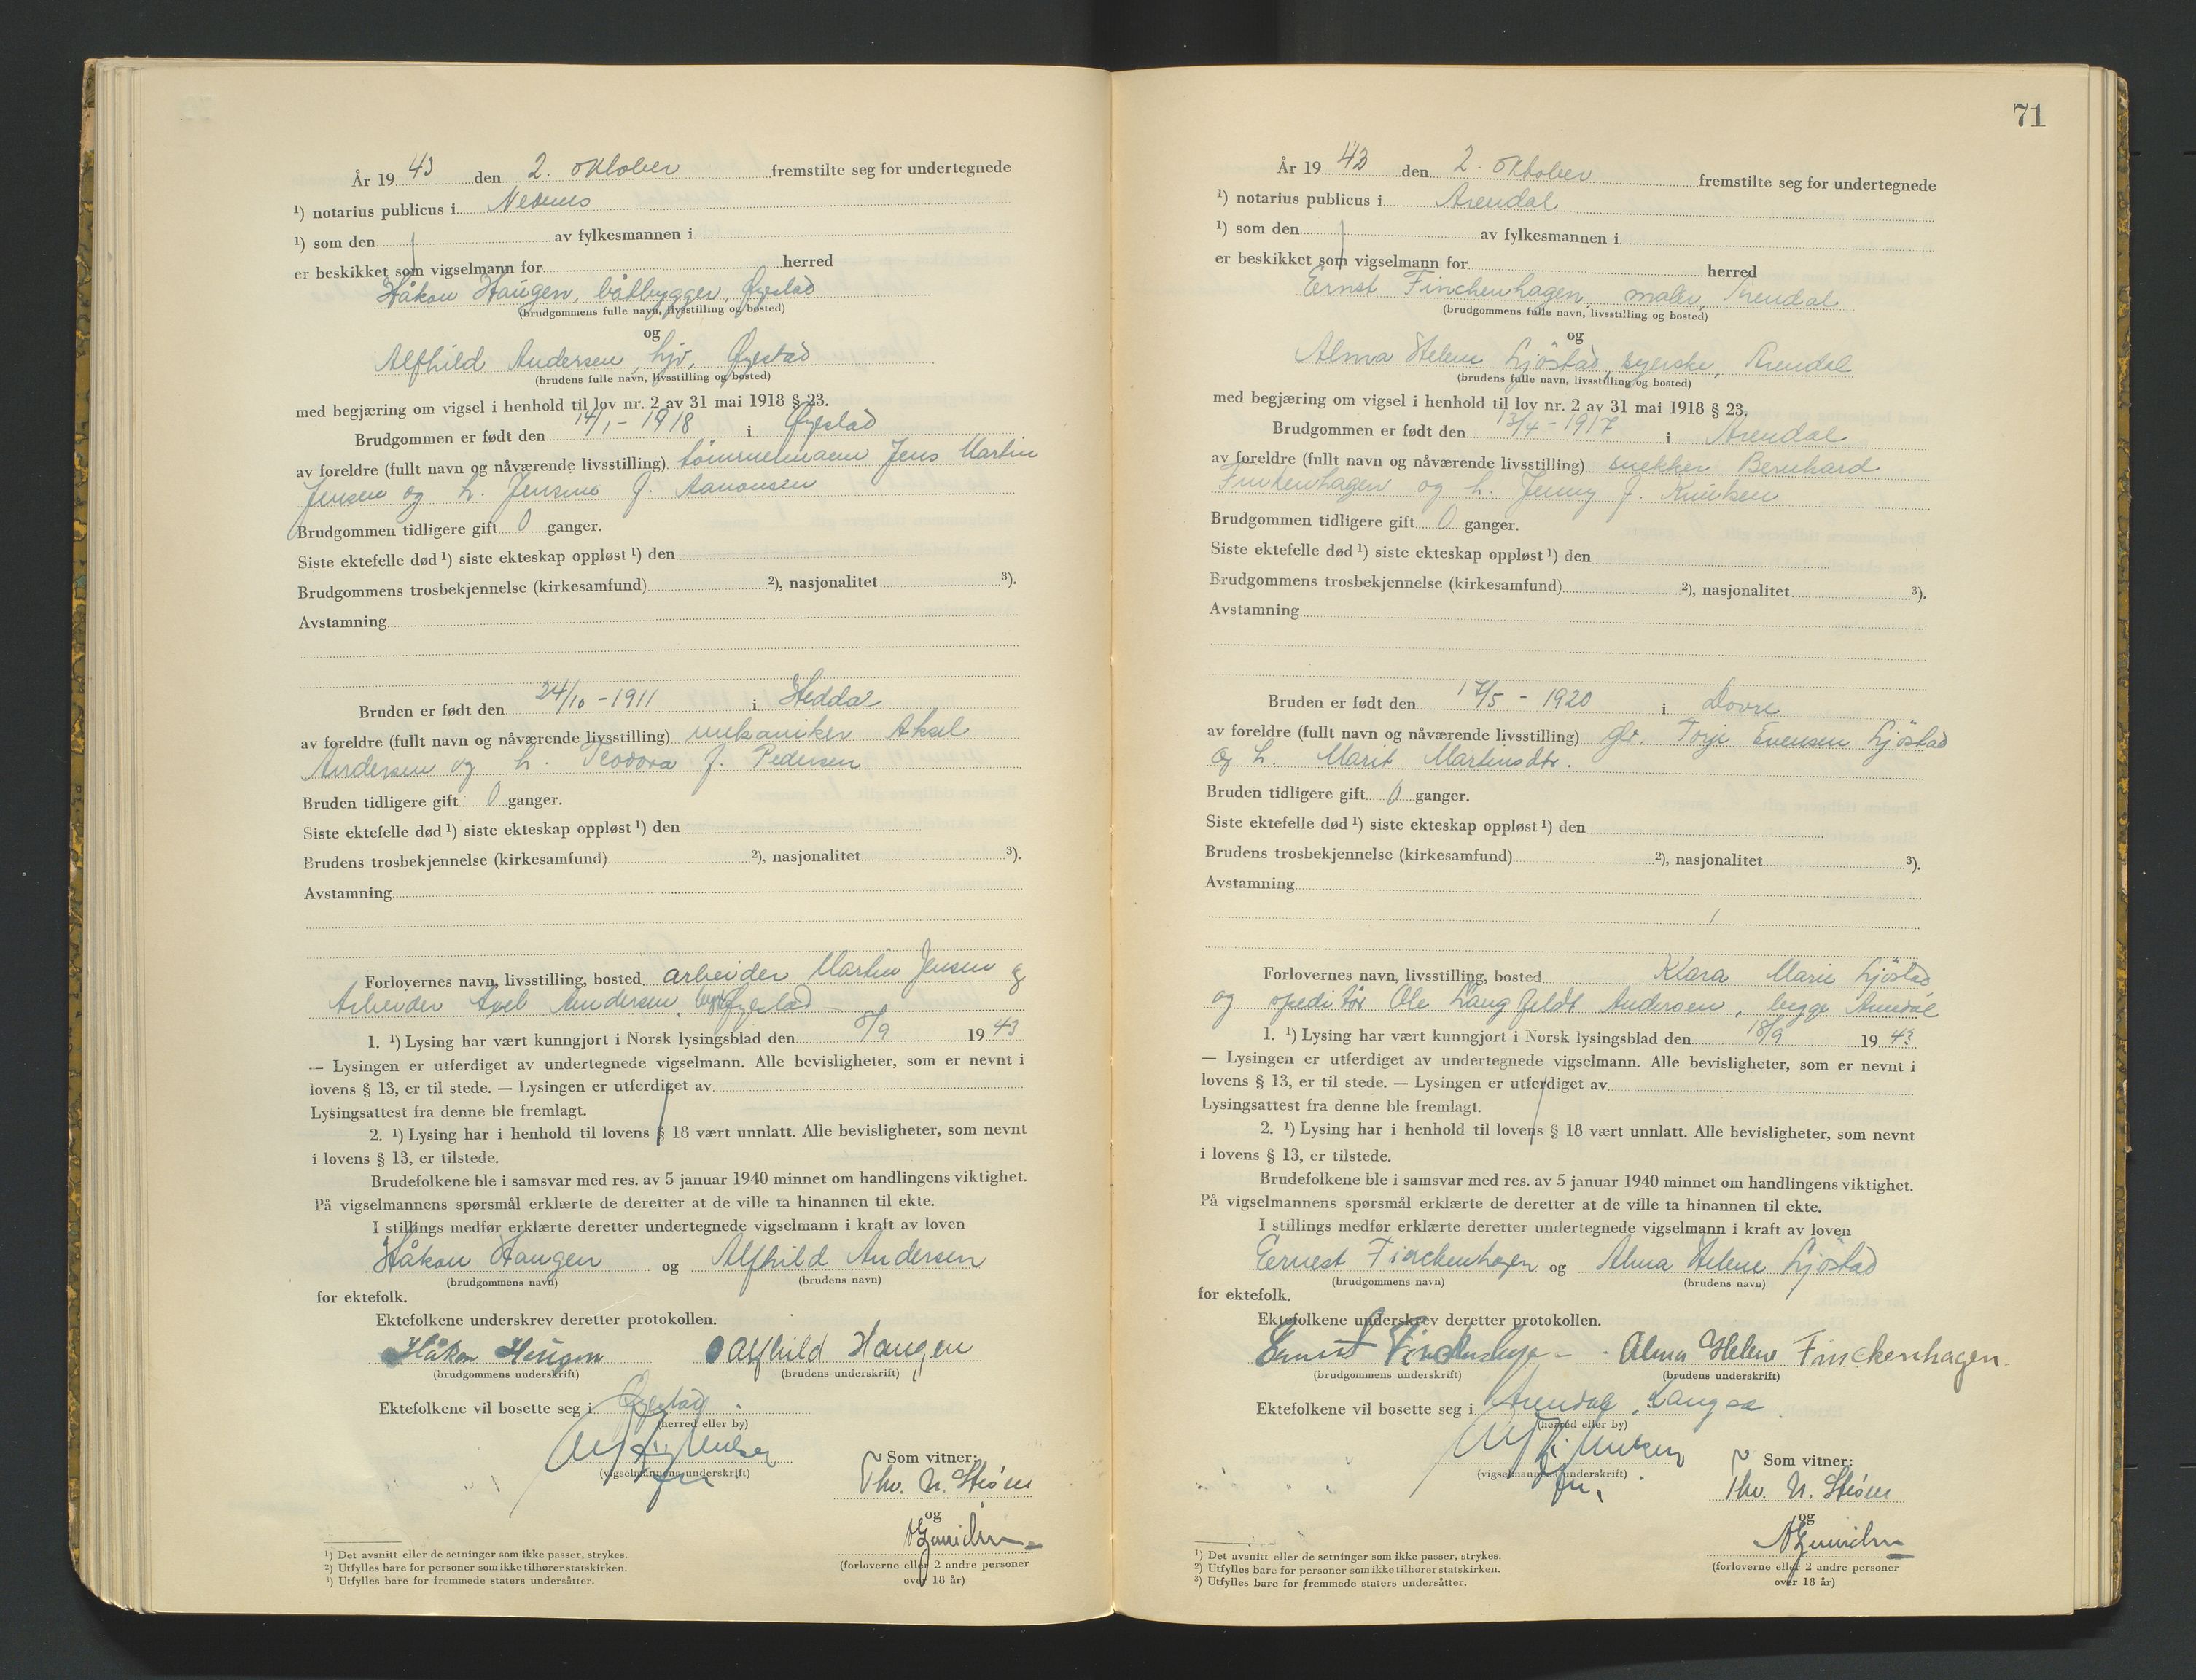 År 19 43 den 2. oktober fremstilte seg for undertegnede
¹) notarius publicus i Nedenes
¹) som den av fylkesmannen i
er beskikket som vigselmann for herred
Håkon Haugen, båtbygger, Øyestad
(brudgommens fulle navn, livsstilling og bosted)
og
Alfhild Andersen, hjv, Øyestad
(brudens fulle navn, livsstilling og bosted)
med begjæring om vigsel i henhold til lov nr. 2 av 31 mai 1918 § 23.
Brudgommen er født den 14/1 - 1918 i Øyestad
av foreldre (fullt navn og nåværende livsstilling) tømmermann Jens Martin
Jensen og h. Jensine f. Aanonsen
Brudgommen tidligere gift 0 ganger.
Siste ektefelle død ¹) siste ekteskap oppløst ¹) den
Brudgommens trosbekjennelse (kirkesamfund) ²), nasjonalitet ³).
Avstamning
Bruden er født den 24/10 - 1911 i Heddal
av foreldre (fullt navn og nåværende livsstilling) mekaniker Aksel
Andersen og h. Teodora f. Pedersen
Bruden tidligere gift 0 ganger.
Siste ektefelle død ¹) siste ekteskap oppløst ¹) den
Brudens trosbekjennelse (kirkesamfund) ²), nasjonalitet ³).
Avstamning
Forlovernes navn, livsstilling, bosted arbeider Martin Jensen og
Arbeider Axel Andersen, begge Øyestad
1. ¹) Lysing har vært kunngjort i Norsk lysingsblad den 8/9 19 43
— Lysingen er utferdiget av undertegnede vigselmann. Alle bevisligheter, som er nevnt i
lovens § 13, er til stede. — Lysingen er utferdiget av
Lysingsattest fra denne ble fremlagt.
2. ¹) Lysing har i henhold til lovens § 18 vært unnlatt. Alle bevisligheter, som nevnt
i lovens § 13, er tilstede.
Brudefolkene ble i samsvar med res. av 5 januar 1940 minnet om handlingens viktighet.
På vigselmannens spørsmål erklærte de deretter at de ville ta hinannen til ekte.
I stillings medfør erklærte deretter undertegnede vigselmann i kraft av loven
Håkon Haugen og Alfhild Andersen
(brudgommens navn) (brudens navn)
for ektefolk.
Ektefolkene underskrev deretter protokollen.
Håkon Haugen Alfhild Haugen
(brudgommens underskrift) (brudens underskrift)
Ektefolkene vil bosette seg i Øyestad.
(herred eller by)
(vigselmannens underskrift)
Som vitner:
Thv. N. Strøm
og
(forloverne eller 2 andre personer
over 18 år)
¹) Det avsnitt eller de setninger som ikke passer, strykes.
²) Utfylles bare for personer som ikke tilhører statskirken.
³) Utfylles bare for fremmede staters undersåtter.
71
År 19 43 den 2. oktober fremstilte seg for undertegnede
¹) notarius publicus i Arendal
¹) som den av fylkesmannen i
er beskikket som vigselmann for herred
Ernst Finckenhagen, maler, Arendal
(brudgommens fulle navn, livsstilling og bosted)
og
Alma Helene Ljøstad, syerske, Arendal
(brudens fulle navn, livsstilling og bosted)
med begjæring om vigsel i henhold til lov nr. 2 av 31 mai 1918 § 23.
Brudgommen er født den 13/4 - 1917 i Arendal
av foreldre (fullt navn og nåværende livsstilling) snekker Bernhard
Finkenhagen og h. Jenny f. Knutsen
Brudgommen tidligere gift 0 ganger.
Siste ektefelle død ¹) siste ekteskap oppløst ¹) den
Brudgommens trosbekjennelse (kirkesamfund) ²), nasjonalitet ³).
Avstamning
Bruden er født den 17/5 - 1920 i Dovre
av foreldre (fullt navn og nåværende livsstilling) gbr. Torje Evensen Ljøstad
og h. Marit Martinsdtr.
Bruden tidligere gift 0 ganger.
Siste ektefelle død ¹) siste ekteskap oppløst ¹) den
Brudens trosbekjennelse (kirkesamfund) ²), nasjonalitet ³).
Avstamning
Forlovernes navn, livsstilling, bosted Klara Marie Ljøstad
og speditør Ole Langfeldt Andersen, begge Arendal
1. ¹) Lysing har vært kunngjort i Norsk lysingsblad den 18/9 19 43
— Lysingen er utferdiget av undertegnede vigselmann. Alle bevisligheter, som er nevnt i
lovens § 13, er til stede. — Lysingen er utferdiget av
Lysingsattest fra denne ble fremlagt.
2. ¹) Lysing har i henhold til lovens § 18 vært unnlatt. Alle bevisligheter, som nevnt
i lovens § 13, er tilstede.
Brudefolkene ble i samsvar med res. av 5 januar 1940 minnet om handlingens viktighet.
På vigselmannens spørsmål erklærte de deretter at de ville ta hinannen til ekte.
I stillings medfør erklærte deretter undertegnede vigselmann i kraft av loven
Ernest Finckenhagen og Alma Helene Ljøstad
(brudgommens navn) (brudens navn)
for ektefolk.
Ektefolkene underskrev deretter protokollen.
Ernst Finckenhagen Alma Helene Finckenhagen.
(brudgommens underskrift) (brudens underskrift)
Ektefolkene vil bosette seg i Arendal, Langsæ
(herred eller by)
(vigselmannens underskrift)
Som vitner:
Thv. N. Strøm
og
(forloverne eller 2 andre personer
over 18 år)
¹) Det avsnitt eller de setninger som ikke passer, strykes.
²) Utfylles bare for personer som ikke tilhører statskirken.
³) Utfylles bare for fremmede staters undersåtter.